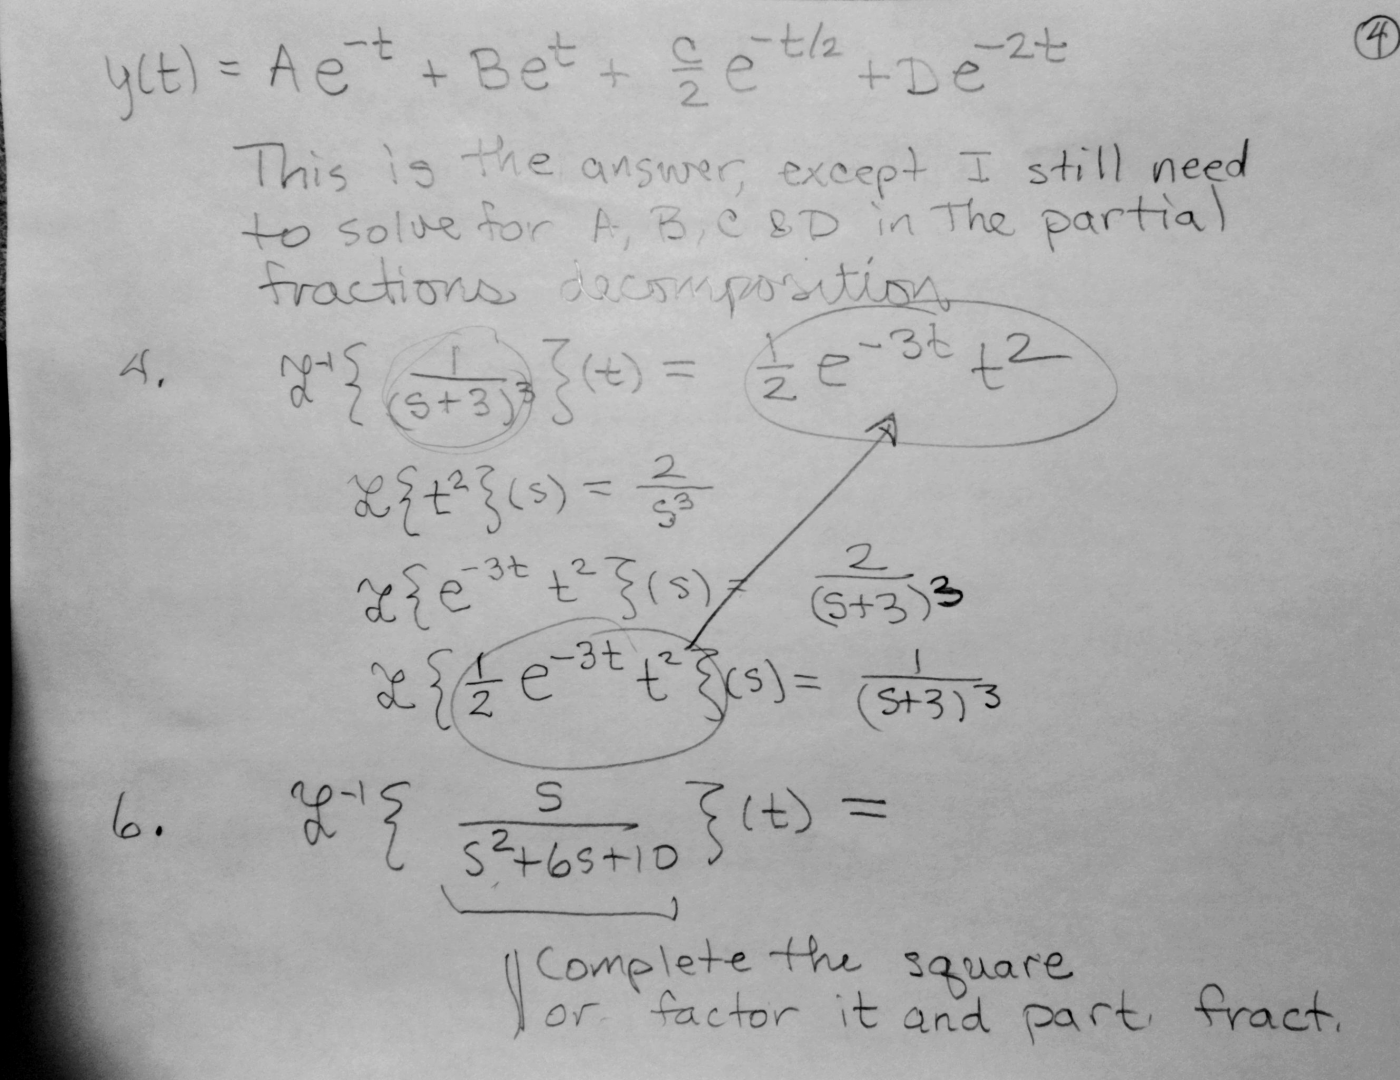 ④
y(t) = Ae^{-t} + Be^{t} + \frac{C}{2} e^{-t/2} + De^{-2t}
This is the answer, except I still need
to solve for A, B, C & D in the partial
fractions decomposition
4. ℒ^{-1}{ \frac{1}{(s+3)^3} }(t) = \frac{1}{2} e^{-3t} t^2
ℒ{t^2}(s) = \frac{2}{s^3}
ℒ{e^{-3t} t^2}(s) = \frac{2}{(s+3)^3}
ℒ{\frac{1}{2} e^{-3t} t^2}(s) = \frac{1}{(s+3)^3}
6. ℒ^{-1}{ \frac{s}{s^2+6s+10} }(t) =
Complete the square
or factor it and part. fract.